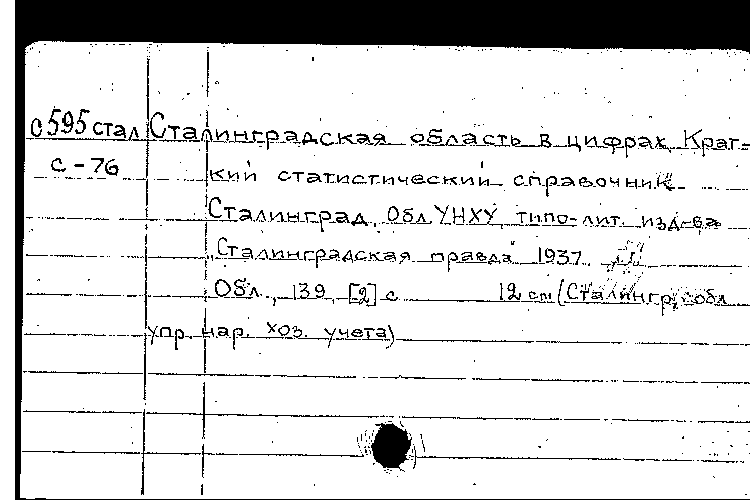 с595стал Сталинградская область в цифрах. Крат-
с-76 кий статистический справочник.
Сталинград, Обл. УНХУ, типо-лит. изд-ва
"Сталинградская правда" 1937.
Обл., 139, [2] с 12 cm (Сталингр. обл
упр. нар. хоз. учета)